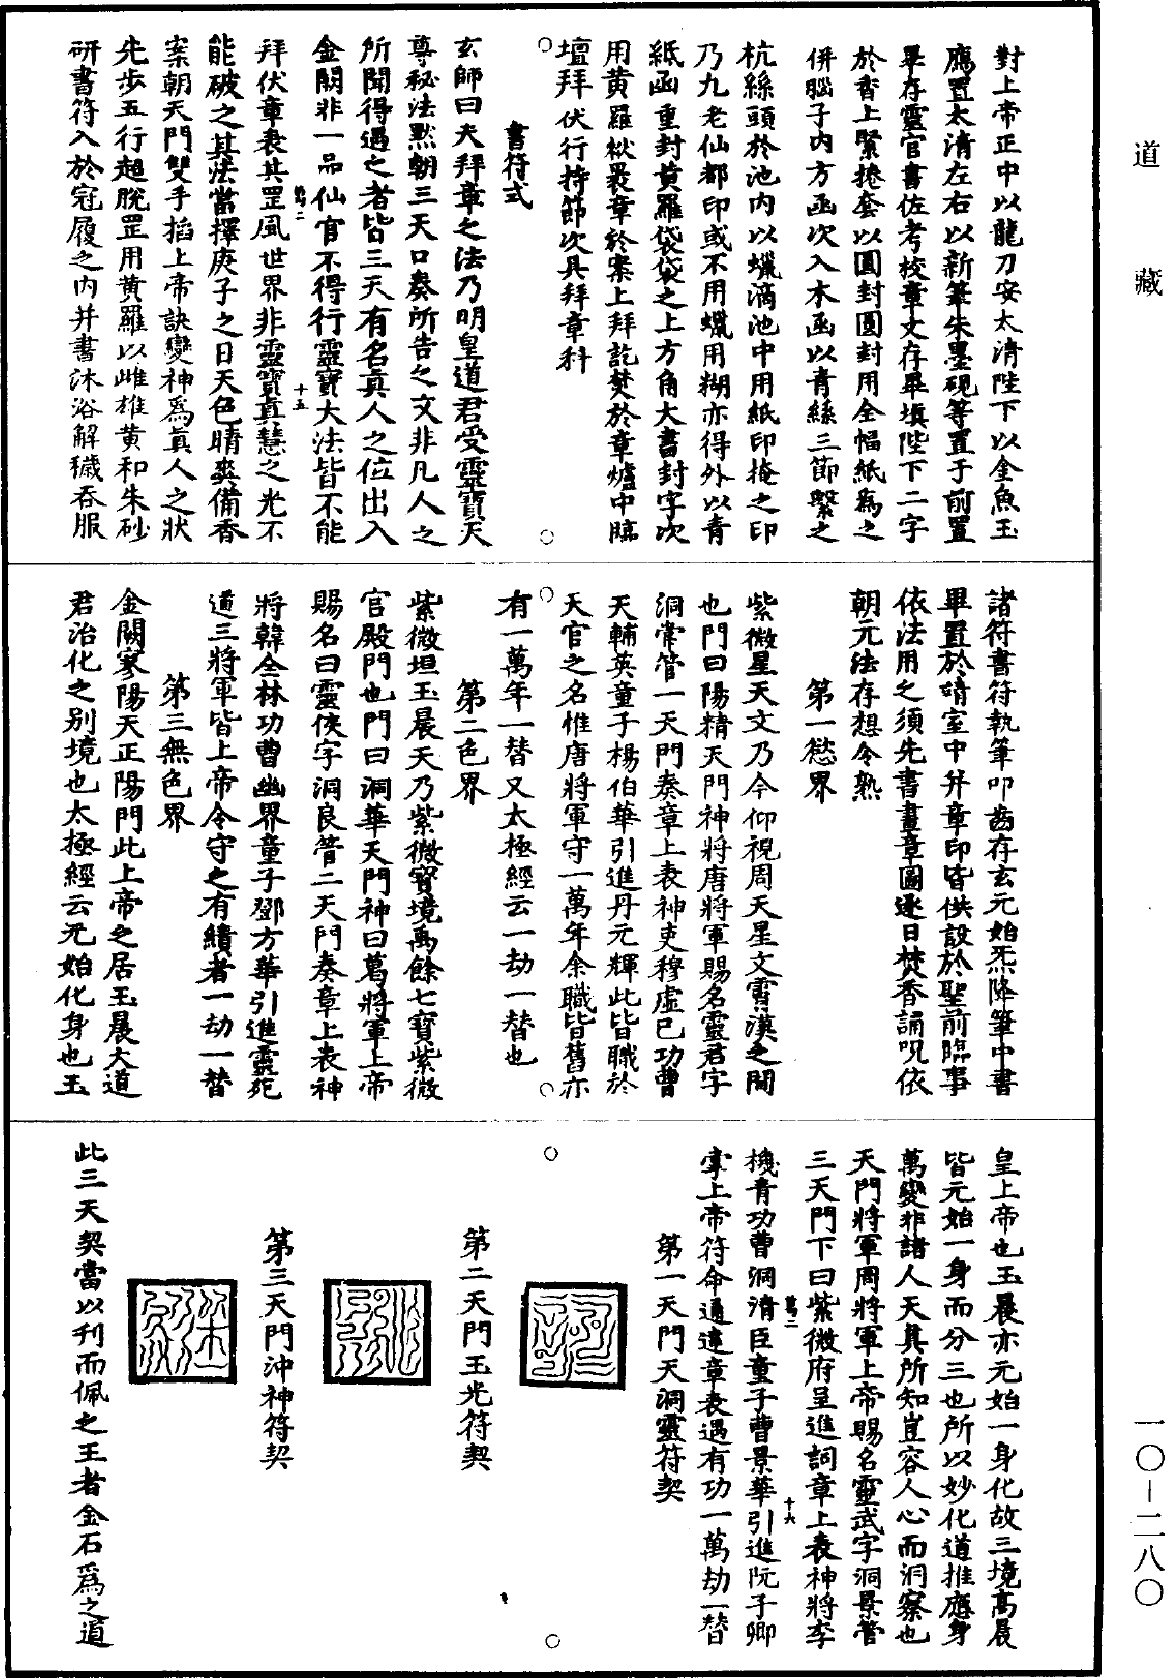 道藏
對上帝正中以龍刀安太清陛下以金魚玉
應置太清左右以新筆朱墨硯等置于前置
畢存靈官書佐考校章文存畢填陛下二字
於香上緊捲套以圓封圓封用全幅紙為之
併腦子內方函次入木函以青絲三節繫之
杭絲頭於池內以蠟滴池中用紙印掩之印
乃九老仙都印或不用蠟用糊亦得外以青
紙函重封黃羅袋袋之上方角大書封字次
用黃羅袱裹章於案上拜訖焚於章爐中臨
壇拜伏行持節次具拜章科
書符式
玄師曰夫拜章之法乃明皇道君受靈寶天
尊秘法默朝三天口奏所告之文非凡人之
所聞得遇之者皆三天有名真人之位出入
金闕非一品仙官不得行靈寶大法皆不能
拜伏章表其罡風世界非靈寶真慧之光不
十五
能破之其法當擇庚子之日天色晴爽備香
案朝天門雙手掐上帝訣變神為真人之狀
先步五行超脫罡用黃羅以雌雄黃和朱砂
研書符入於冠履之內并書沐浴解穢吞服
諸符書符執筆叩齒存玄元始炁降筆中書
畢置於靖室中并章印皆供設於聖前臨事
依法用之須先書畫章圖逐日焚香誦呪依
朝元法存想令熟
第一慾界
紫微星天文乃今仰視周天星文霄漢之間
也門曰陽精天門神將唐將軍賜名靈君字
洞常管一天門奏章上表神吏穆虛已功曹
天輔英童子楊伯華引進丹元輝此皆職於
天官之名惟唐將軍守一萬年余職皆舊亦
有一萬年一替又太極經云一劫一替也
第二色界
紫微垣玉晨天乃紫微寶境禹餘七寶紫微
官殿門也門曰洞華天門神曰葛將軍上帝
賜名曰靈俠字洞良管二天門奏章上表神
將韓全林功曹幽界童子鄧方華引進靈死
道三將軍皆上帝令守之有績者一劫一替
第三無色界
金闕寥陽天正陽門此上帝之居玉晨大道
君治化之別境也太極經云元始化身也玉
皇上帝也玉晨亦元始一身化故三境高晨
皆元始一身而分三也所以妙化道推應身
萬變非諸人天真所知豈容人心而洞察也
天門將軍周將軍上帝賜名靈武字洞景管
三天門下曰紫微府呈進詞章上表神將李
十六
機青功曹洞清臣童子曹景華引進阮子卿
掌上帝符命通達章表遇有功一萬劫一替
第一天門天洞靈符契
第二天門玉光符契
第三天門沖神符契
此三天契當以刋而佩之王者金石為之道
一〇－二八〇